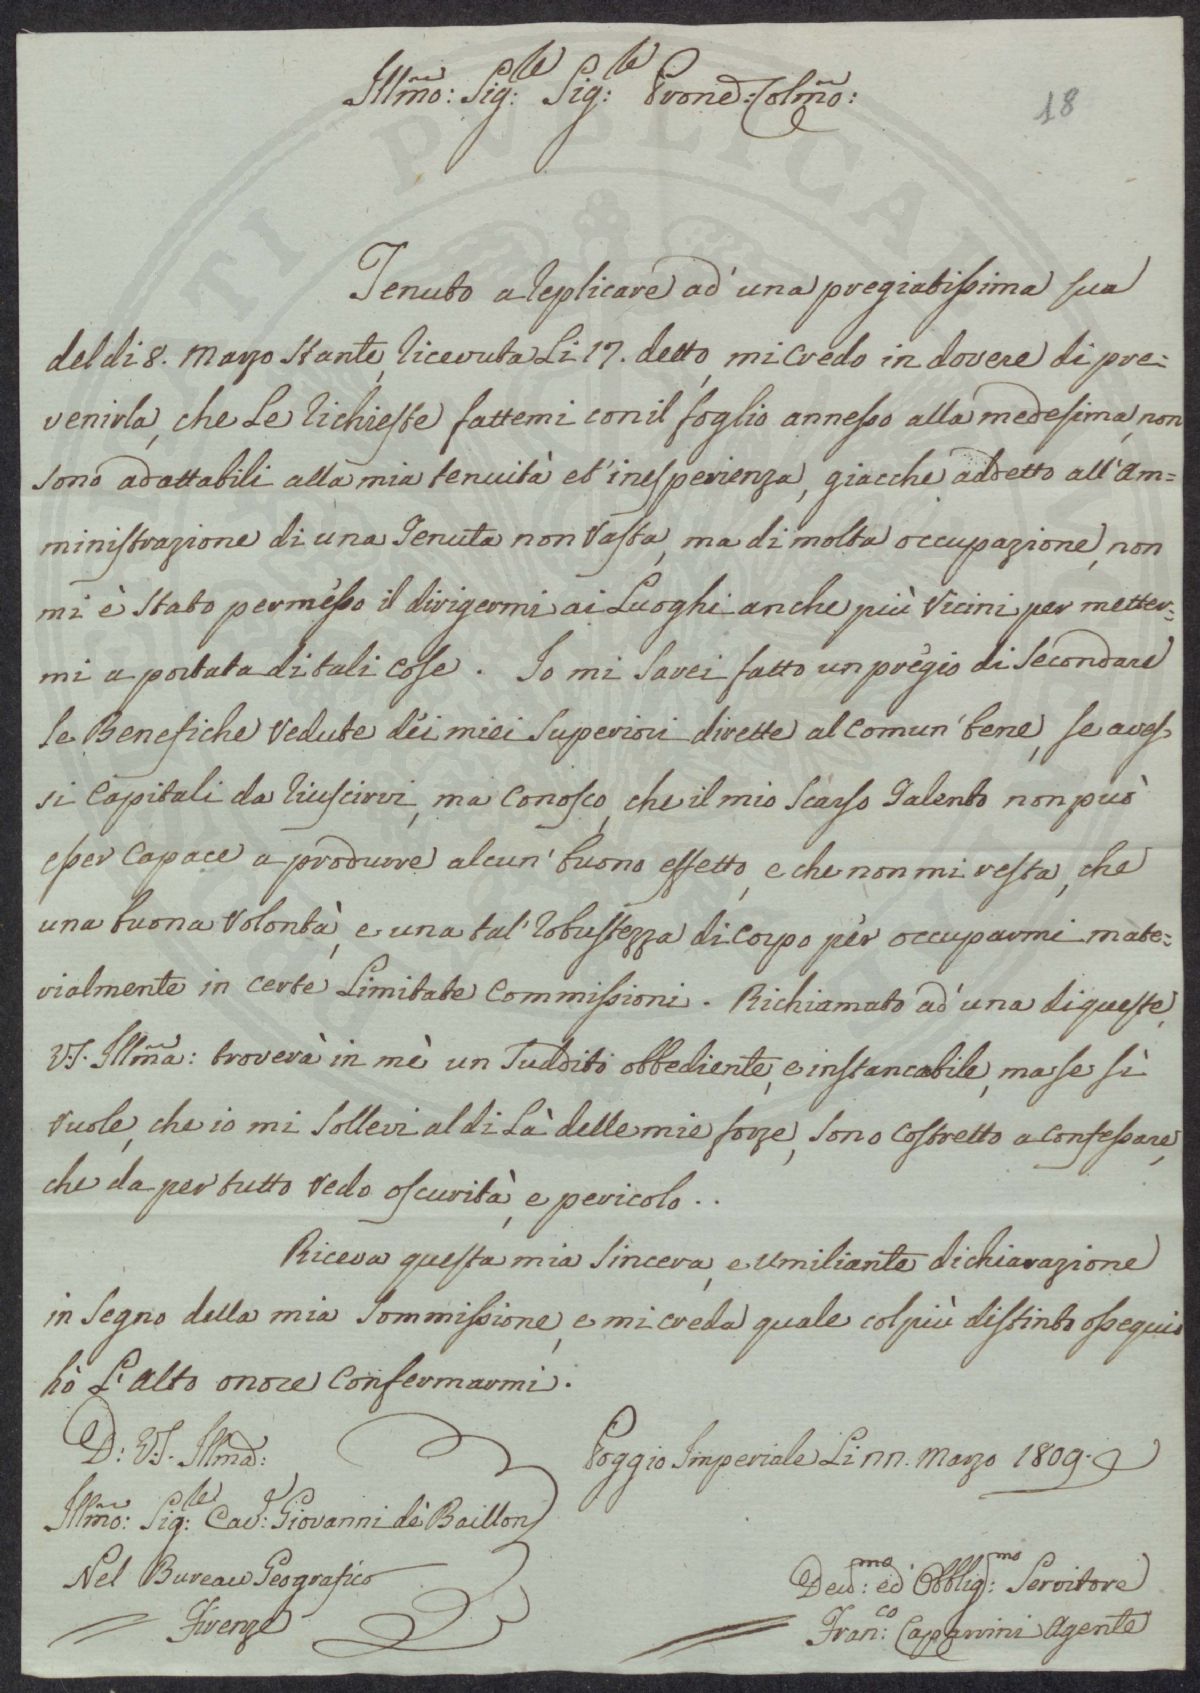 Illmo: Sig:le Sig:le Prone Colmo:
18
Tenuto a replicare ad' una pregiatissima sua
del di 8. Marzo stante, ricevuta Li 17. detto, mi credo in dovere di pre=
venirla, che Le richieste fattemi con il foglio annesso alla medesima, non
sono adattabili alla mia tenuità et' inesperienza, giacche addetto all' Am=
ministrazione di una Tenuta non Vasta, ma di molta occupazione, non
mi è stato permesso il dirigermi ai Luoghi anche più Vicini per metter=
mi a portata di tali cose. Io mi sarei fatto un prégio di Secondare
le Benefiche Vedute déi miei Superiori dirette al comun' bene, se aves=
si Capitali da riuscirvi, ma Conosco, che il mio Scarso Talento non può
esser Capace a produrre alcun' buono effetto, e che non mi resta, che
una buona Volontà, e una tal' robustezza di Corpo pér occuparmi mate=
rialmente in certe Limitate Commissioni. Richiamato ad' una di queste,
V.S. Illma: troverà in mè un Suddito obbediente, e instancabile, ma se sì
Vuole, che io mi sollevi al di Là delle mie forze, sono costretto a confessare,
che da per tutto Vedo oscurità, e pericolo..
Riceva questa mia sincera, e Umiliante dichiarazione
in Segno della mia Sommissione, e mi creda quale col più distinto ossequio
hò L' alto onore Confermarmi.
D: V.S. Illma:
Poggio Imperiale Li 22. Marzo 1809.
Illmo: Sig:le Cav:r Giovanni dè Baillon
Nel Bureau Geografico
Firenze
Dev:mo ed Obblig:mo Servitore
Fran:co Caparrini Agente
PUBLICAE